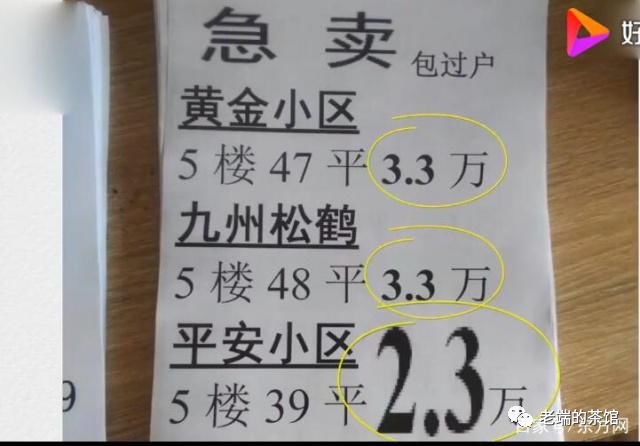 好
急卖 包过户
黄金小区
5楼47平3.3万
九州松鹤
5楼48平3.3万
平安小区
5楼39平2.3万
9
老端的茶馆
百家号/东方网